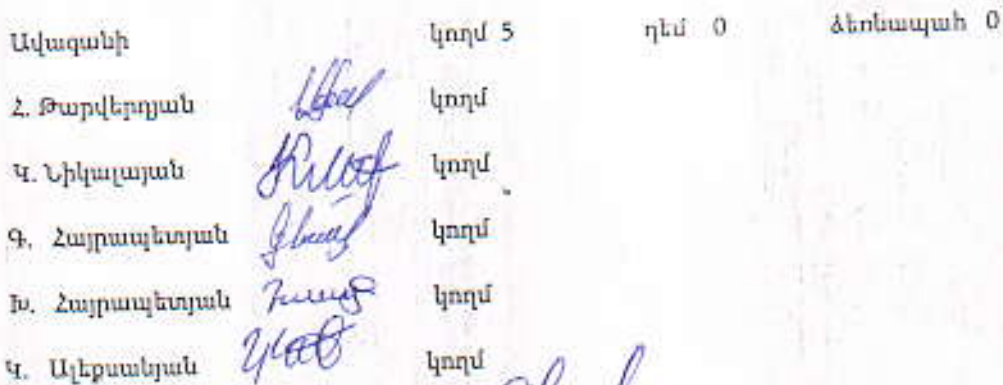 Ավագանի կողմ 5 դեմ 0 ձեռնապահ 0
Հ. Թարվերդյան կողմ
Կ. Նիկալայան կողմ
Գ. Հայրապետյան կողմ
Խ. Հայրապետյան կողմ
Կ. Ալեքսանյան կողմ